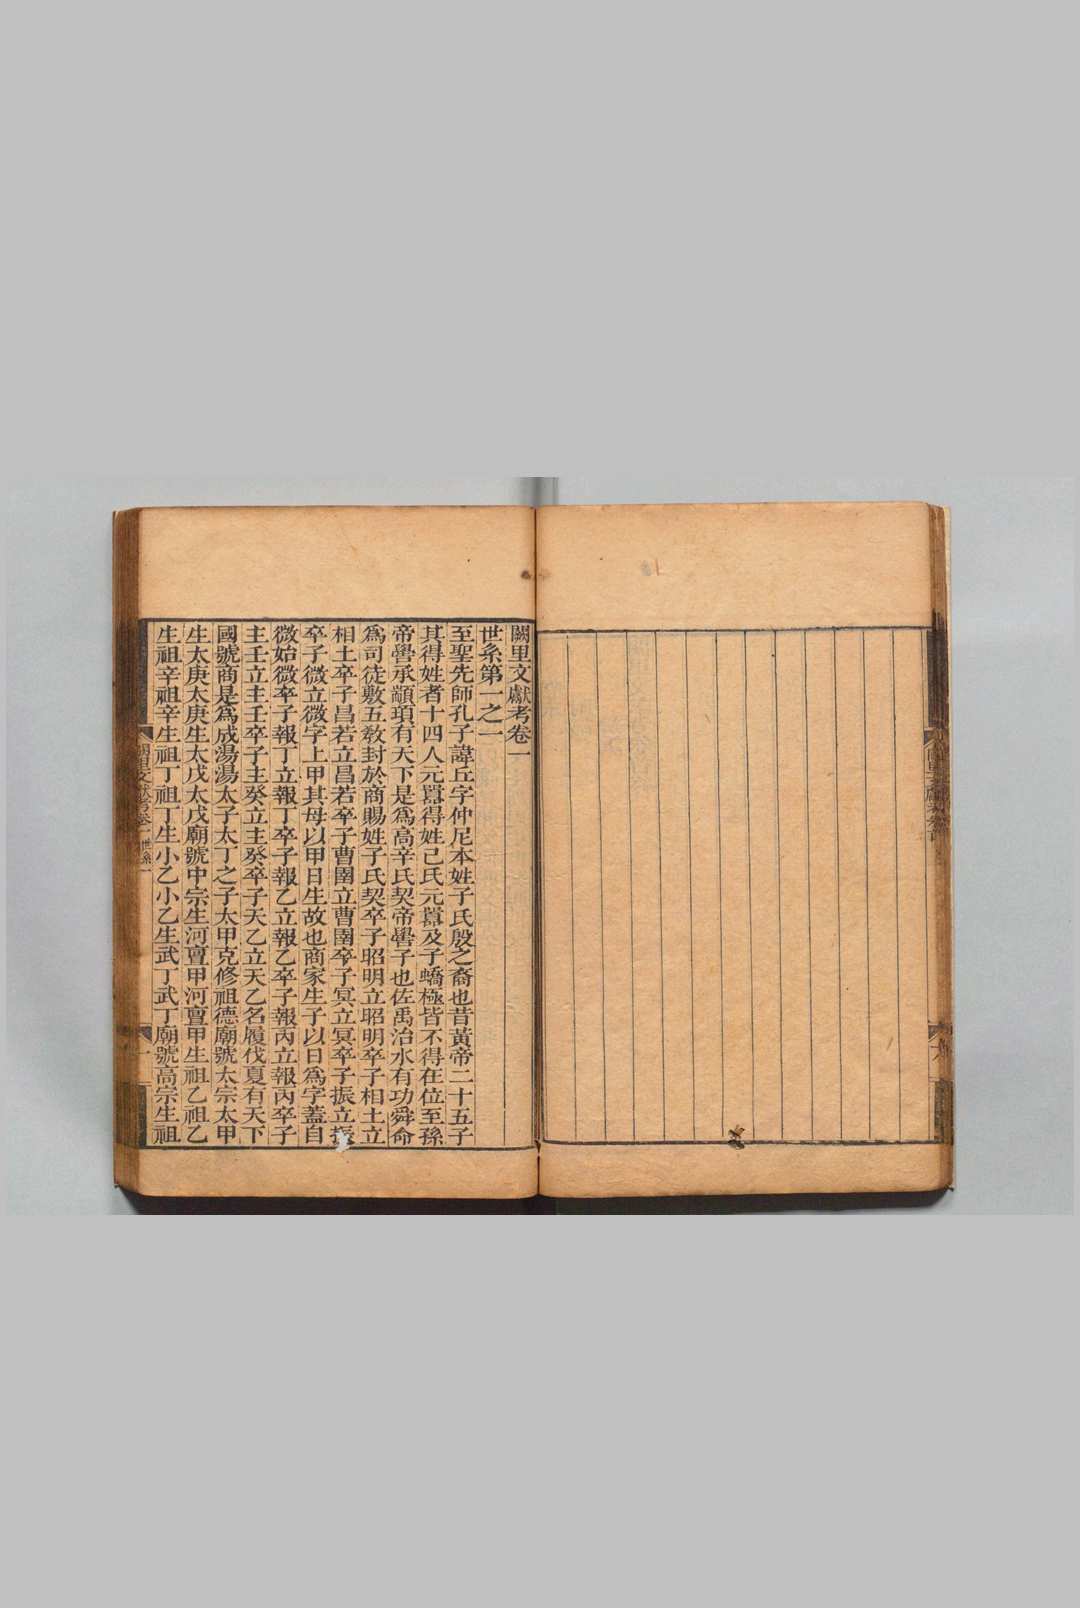 闕里文獻考卷一
世系第一之一
至聖先師孔子諱丘字仲尼本姓子氏殷之裔也昔黃帝二十五子
其得姓者十四人元囂得姓己氏元囂及子蟜極皆不得在位至孫
帝嚳承顓頊有天下是爲高辛氏契帝嚳子也佐禹治水有功舜命
爲司徒敷五敎封於商賜姓子氏契卒子昭明立昭明卒子相土立
相土卒子昌若立昌若卒子曹圉立曹圉卒子冥立冥卒子振立振
卒子微立微字上甲其母以甲日生故也商家生子以日爲字蓋自
微始微卒子報丁立報丁卒子報乙立報乙卒子報丙立報丙卒子
主壬立主壬卒子主癸立主癸卒子天乙立天乙名履伐夏有天下
國號商是爲成湯湯太子太丁之子太甲克修祖德廟號太宗太甲
生太庚太庚生太戊太戊廟號中宗生河亶甲河亶甲生祖乙祖乙
生祖辛祖辛生祖丁祖丁生小乙小乙生武丁武丁廟號高宗生祖
闕里文獻考卷一 世系 一